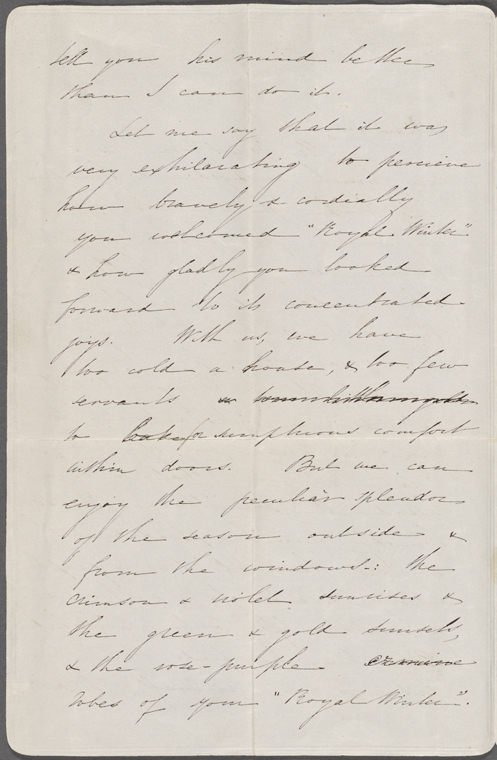 tell you his mind better
than I can do it.
Let me say that it was
very exhilarating to perceive
how bravely & cordially
you welcomed "Royal Winter"
& how gladly you looked
forward to its concentrated
joys. With us, we have
too cold a house, & too few
servants
to look for sumptuous comfort
within doors. But we can
enjoy the peculiar splendor
of the season outside &
from the windows: the
crimson & violet sunrises &
the green & gold sunsets,
& the rose-purple ermine
robes of your "Royal Winter".